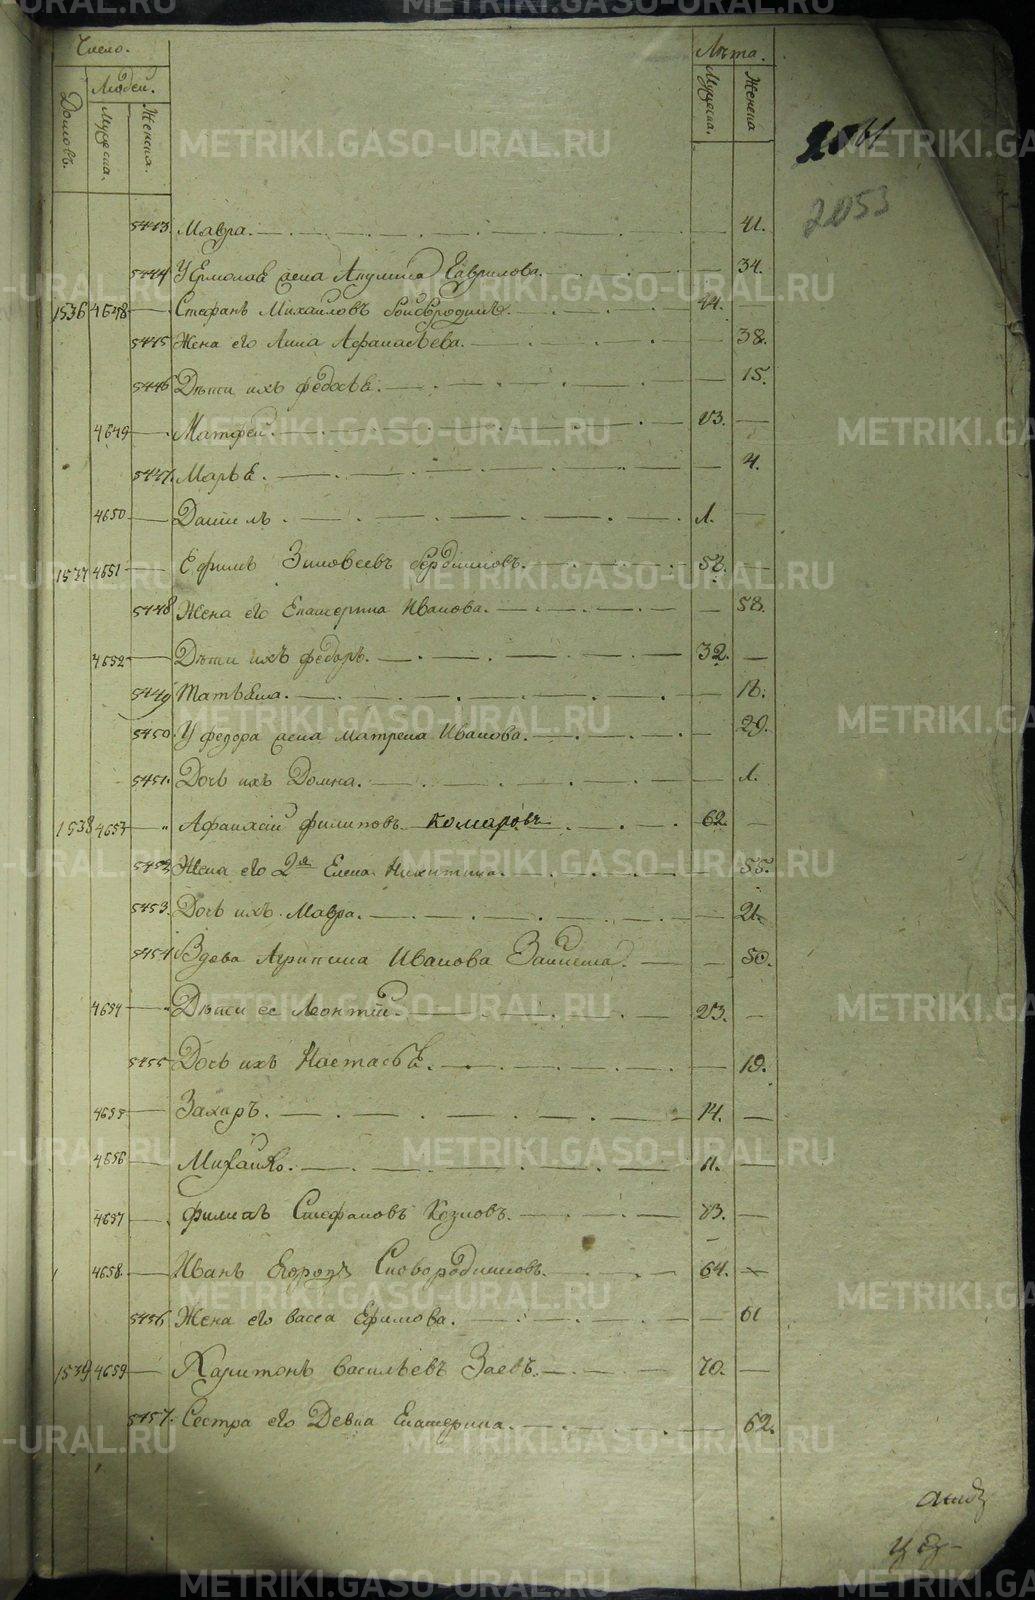 Число.
Лѣта.
Людей.
Домовъ.
Мужеска.
Женска.
Мужеска.
Женска
2053
5443 Мавра. 41.
5444 У Ермолая жена Акулина Гаврилова. 34.
1536 4648 Стефанъ Михайловъ 44.
5445 Жена его Анна Афанасьева. 38.
5446 Дѣти ихъ Федосья. 15.
4649 Матфей. 13.
5447. Марья. 4.
4650 Даниилъ. 1.
1537 4651 Ефимъ Зиновьевъ Бердниковъ. 52.
5448 Жена его Екатерина Иванова. 58.
4652 Дѣти ихъ Федоръ. 32.
5449 Татьяна. 16.
5450. У Федора жена Матрена Иванова. 29.
5451. Дочь ихъ Домна. 1.
1538 4653 Афанасий Филиповъ Комаровъ 62.
5452 Жена его 2я Елена Никитина. 55.
5453. Дочь ихъ Мавра. 21.
5454 Вдова Агрипина Иванова 50.
4654 Дѣти ее Леонтий. 23.
5455 Дочь ихъ Настасья. 19.
4655 Захаръ. 14.
4656 Михайло. 11.
4657 Филипъ Стефановъ Козловъ. 73.
4658. Иванъ Сковородниковъ. 64.
5456 Жена его Васса Ефимова. 61
1539 4659 Харитонъ Васильевъ Заевъ. 70.
5457. Сестра его Девка Екатерина. 62.
METRIKI.GASO-URAL.RU